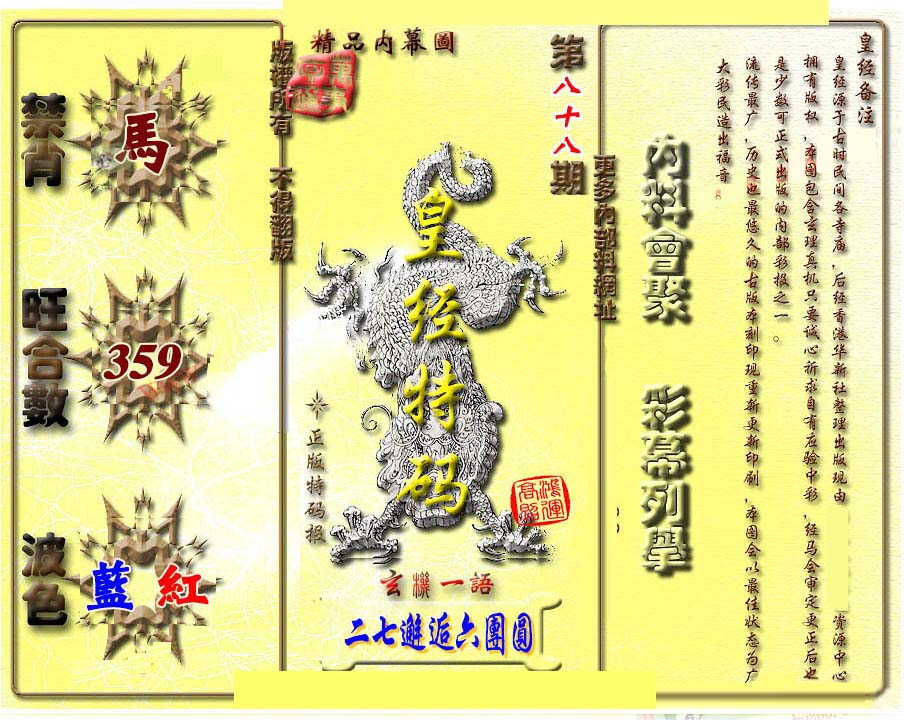 精品内幕圖
第八十八期
版權所有 不得翻版
更多內部料網址
禁肖
馬
旺合數
359
波色
藍 紅
皇经特码
正版特码报
鴻運高照
玄機一語
二七邂逅六團圓
內料會聚 彩幕列舉
皇经备注
皇经源于古时民间各寺庙,后经香港华新社整理出版现由 资源中心
拥有版权,本图包含玄理真机只要诚心祈求自有应验中彩,经马会审定更正后也
是少数可正式出版的内部彩报之一。
流传最广,历史也最悠久的古版本刻印现重新更新印刷,本图会以最佳状态为广
大彩民造出福音